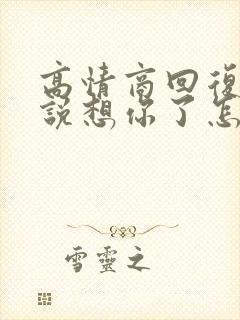 高情商回復
說想你了怎
雪靈之